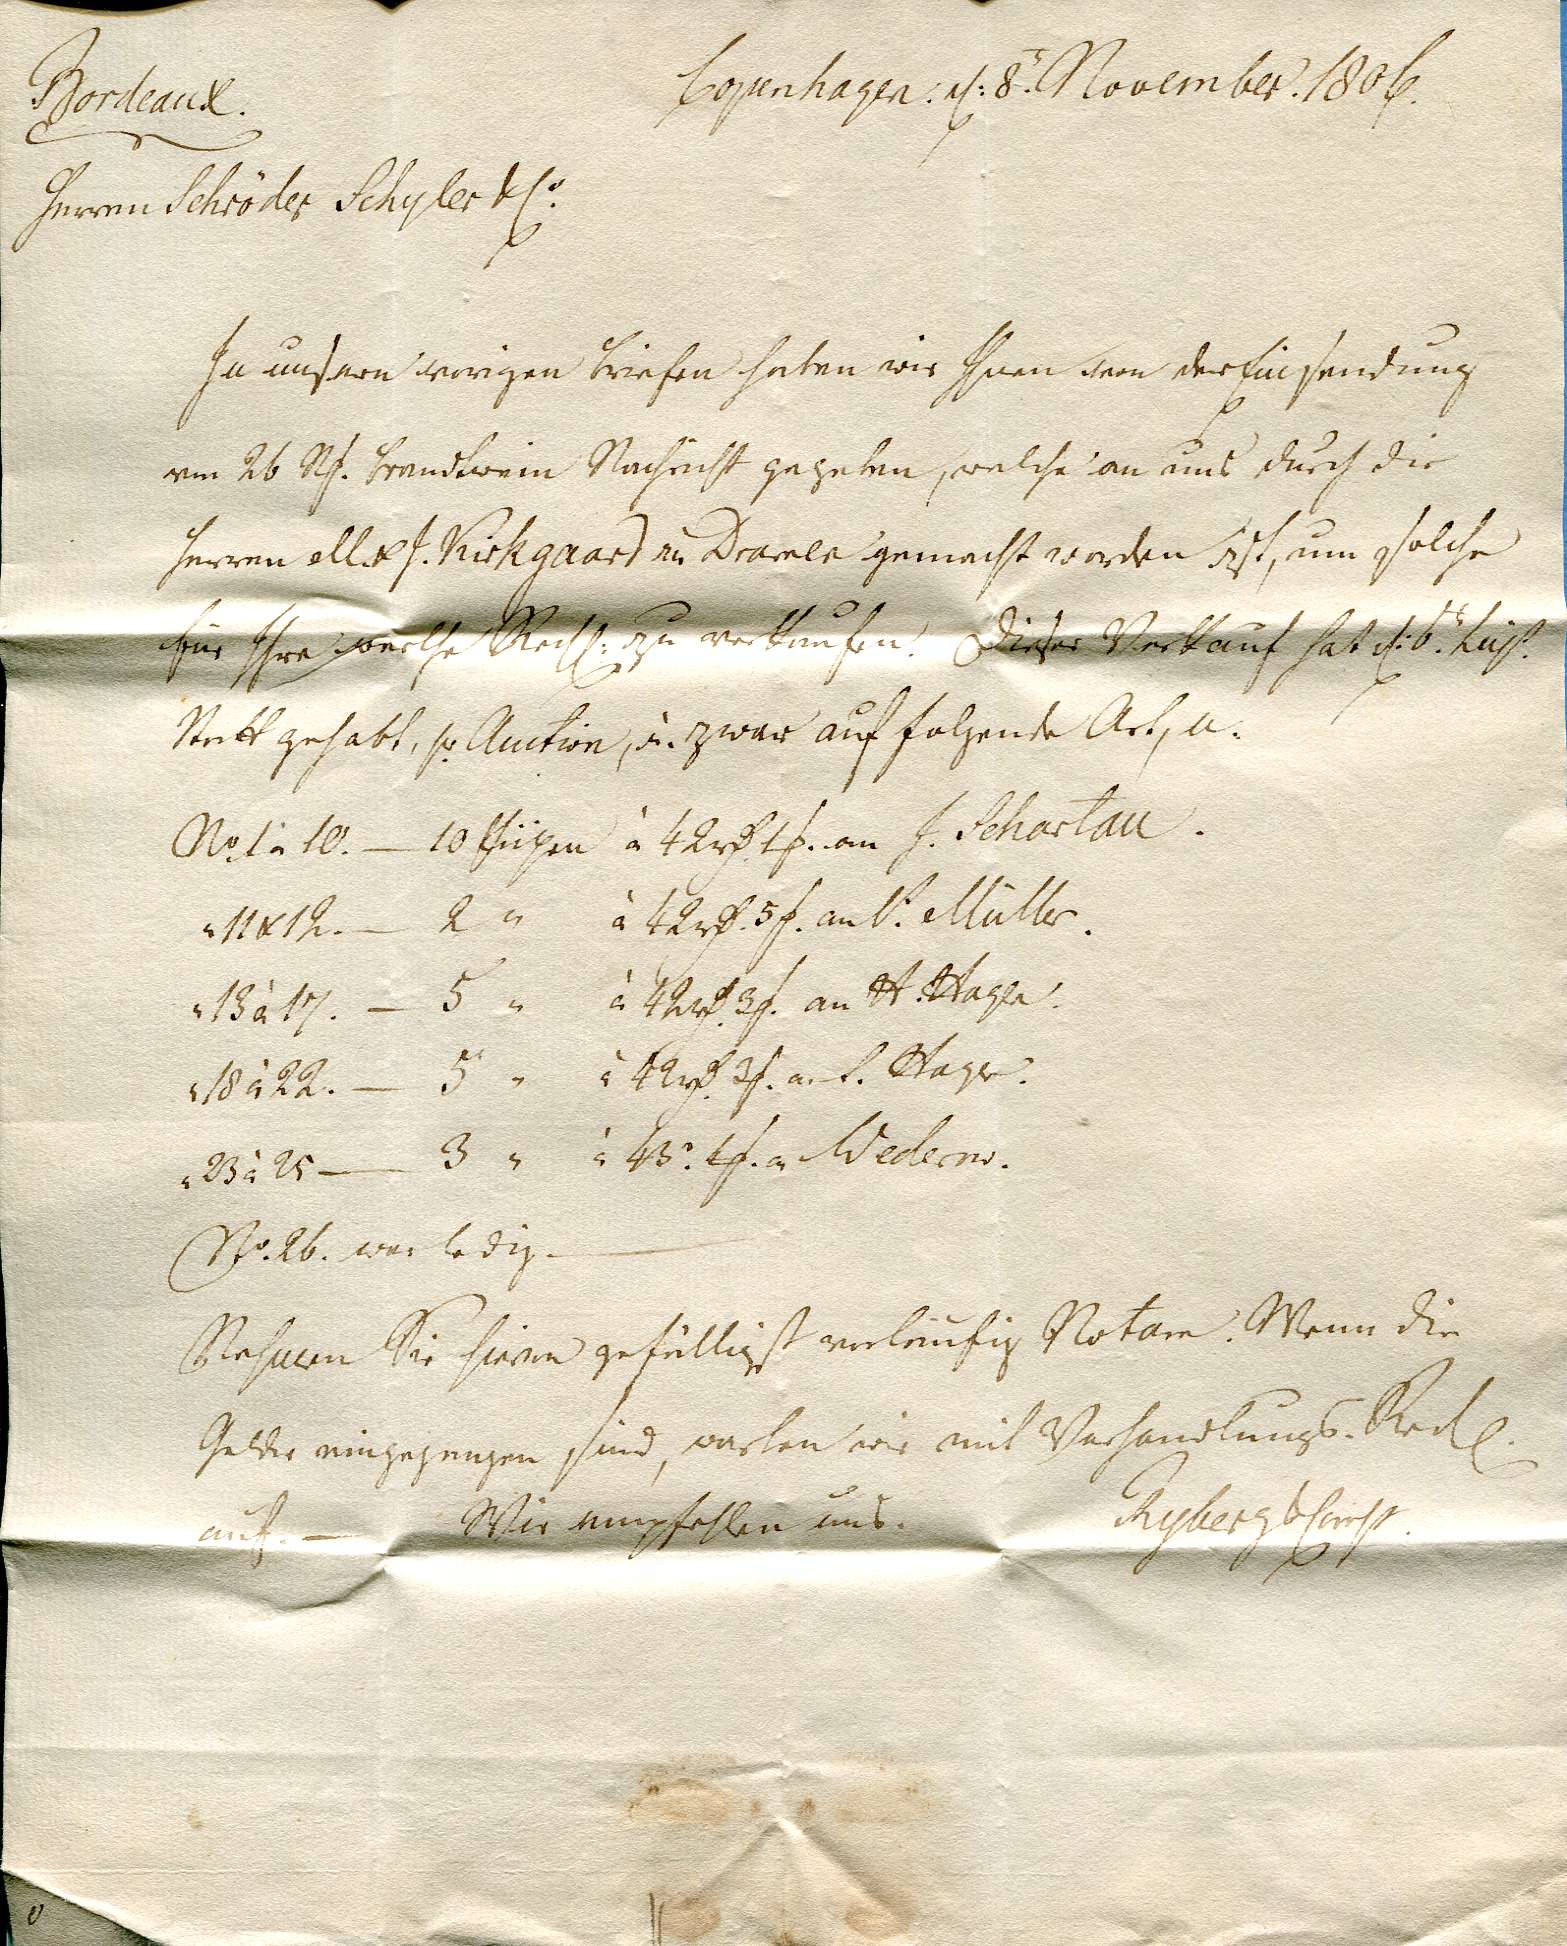 Bordeaux.
Copenhagen. d: 8t. November. 1806.
Herren Schröder Schyler & Co.
In unsern vorigen Briefen haben wir Ihnen von der Einsendung
von 26 Brandtwein Nachricht gegeben, welche an uns durch die
Herren M. & J. Kirkgaard in gemacht worden ist, um solche
für Ihre werthe Rech: zu verkaufen. Dieser Verkauf hat d: 6t.
Statt gehabt, pr Auction, u. zwar auf folgende Art, a.
No. 1 à 10. — 10 Piepen à 42 an J. Schartau.
" 11 & 12. — 2 " à 42 5 an Müller.
" 13 à 17. — 5 " à 42 3 an H. Hage.
" 18 à 22. — 5 " à 42 3 Hage.
" 23 à 25 — 3 " à 43
No. 26. war ledig. —
Nehmen Sie hievon gefälligst vorläufig Notam. Wenn die
Gelder eingegangen sind, warten wir mit Verhandlungs-Rech
auf. — Wir empfehlen uns. Ryberg &